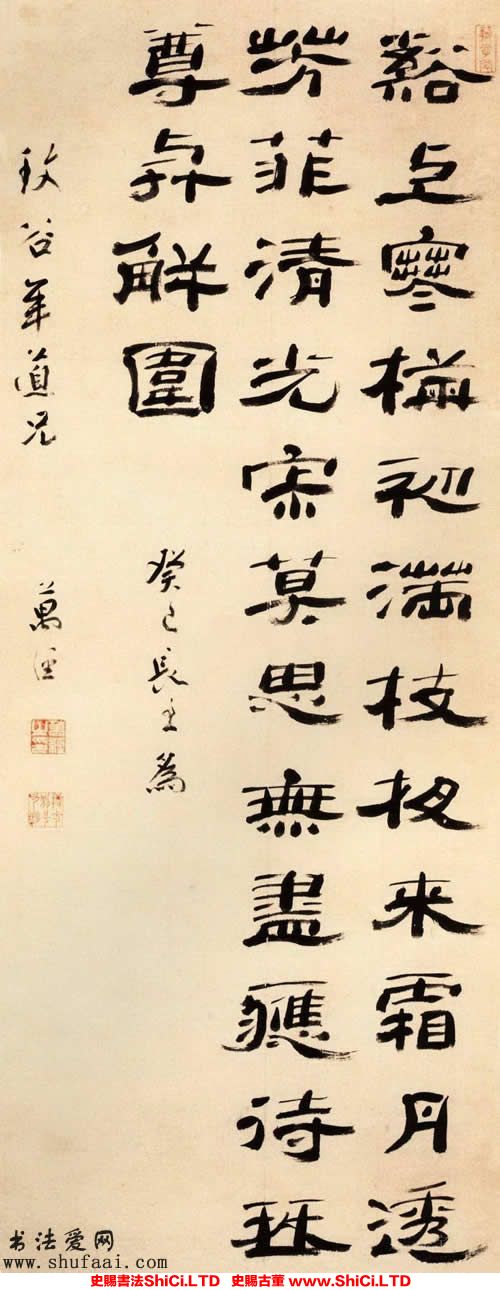 谿上寒梅初滿枝夜來霜月透
芳菲清光寂莫思無盡應待琴
尊與解圍
癸巳長至為
谷年道兄
萬經
书法爱网
www.shufaai.com
史賜書法ShiCi.LTD 史賜古董 www.ShiCi.LTD